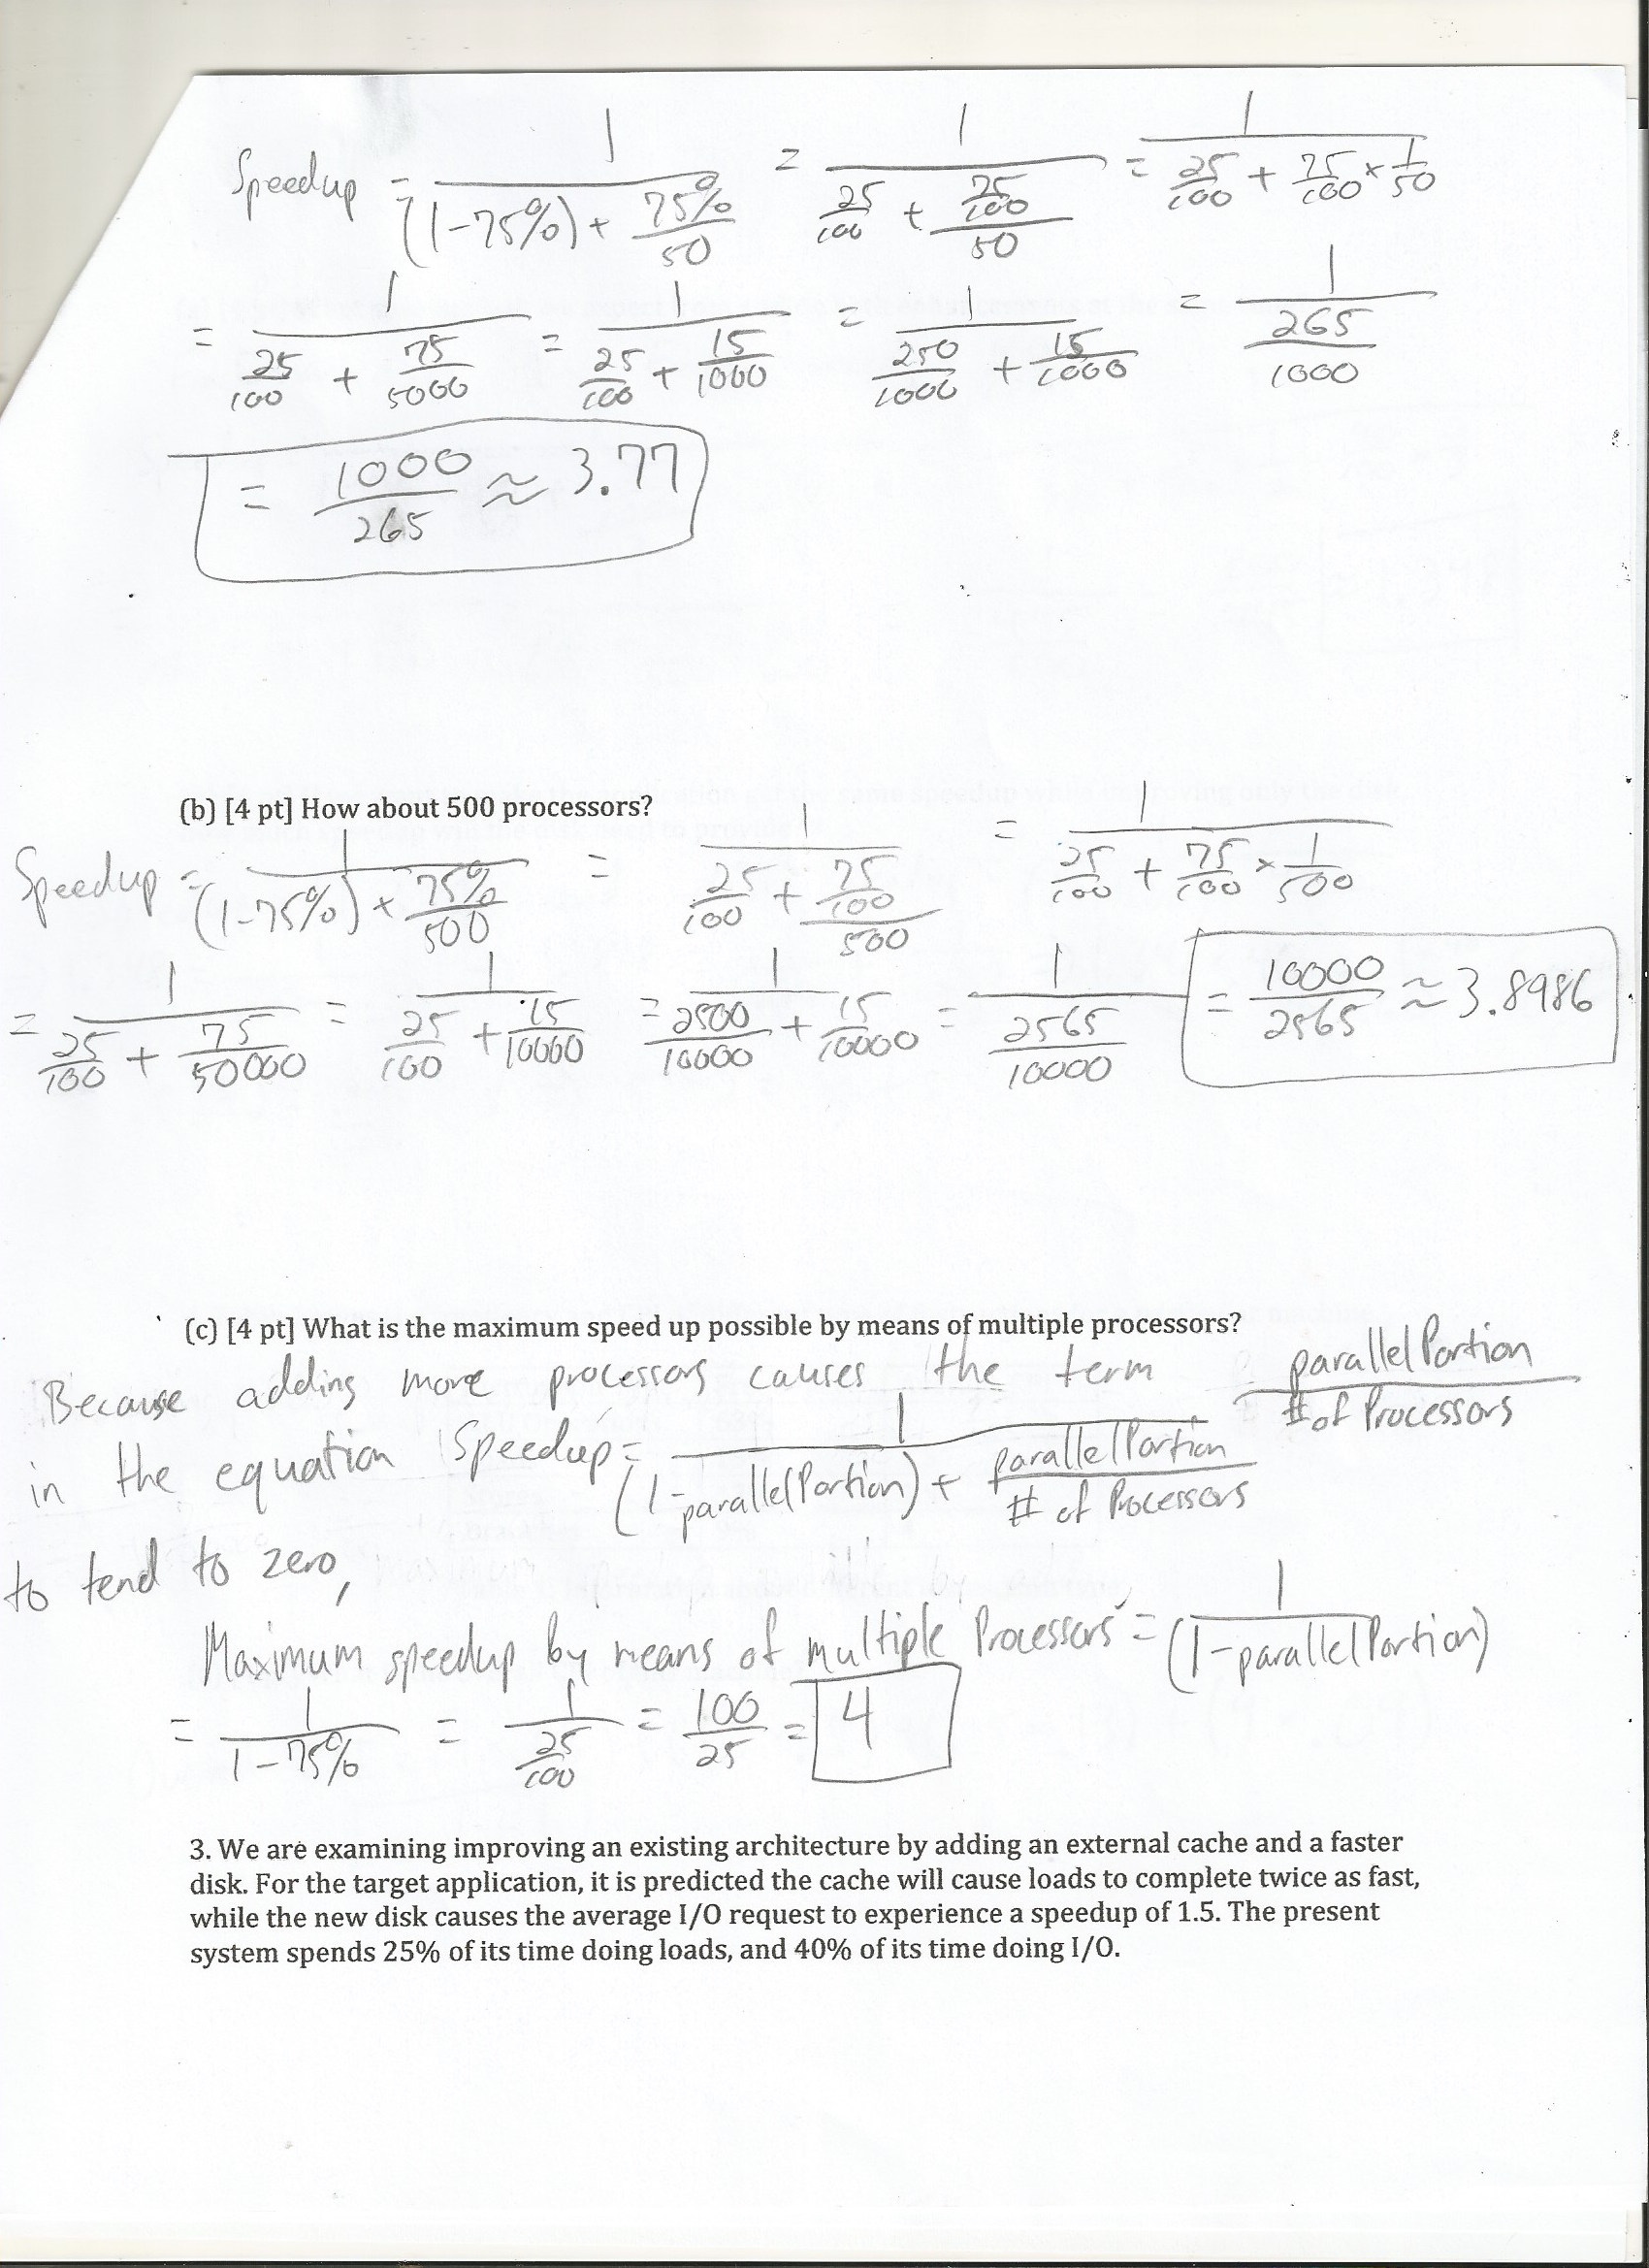 Speedup = 1/((1-75%) + 75%/50) = 1/(25/100 + (75/100)/50) = 1/(25/100 + 75/100 × 1/50)
= 1/(25/100 + 75/5000) = 1/(25/100 + 15/1000) = 1/(250/1000 + 15/1000) = 1/(265/1000)
= 1000/265 ≈ 3.77
(b) [4 pt] How about 500 processors?
Speedup = 1/((1-75%) + 75%/500) = 1/(25/100 + (75/100)/500) = 1/(25/100 + 75/100 × 1/500)
= 1/(25/100 + 75/50000) = 1/(25/100 + 15/10000) = 1/(2500/10000 + 15/10000) = 1/(2565/10000) = 10000/2565 ≈ 3.8986
(c) [4 pt] What is the maximum speed up possible by means of multiple processors?
Because adding more processors causes the term parallelPortion/# of Processors
in the equation Speedup = 1/((1-parallelPortion) + parallelPortion/# of Processors)
to tend to zero,
Maximum speedup by means of multiple Processors = 1/(1-parallelPortion)
= 1/(1-75%) = 1/(25/100) = 100/25 = 4
3. We are examining improving an existing architecture by adding an external cache and a faster
disk. For the target application, it is predicted the cache will cause loads to complete twice as fast,
while the new disk causes the average I/O request to experience a speedup of 1.5. The present
system spends 25% of its time doing loads, and 40% of its time doing I/O.